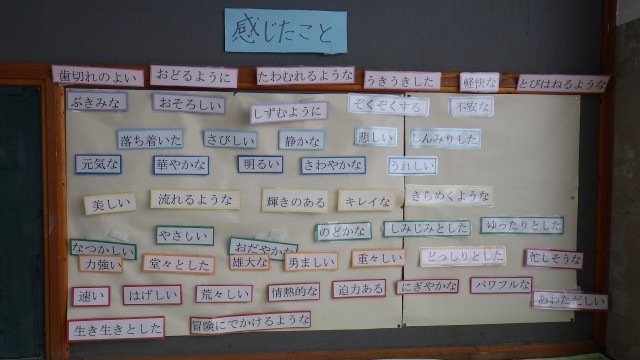 感じたこと
歯切れのよい おどるように たわむれるような うきうきした 軽快な とびはねるような
ぶきみな おそろしい しずむように ぞくぞくする 不安な
落ち着いた さびしい 静かな 悲しい しんみりした
元気な 華やかな 明るい さわやかな うれしい
美しい 流れるような 輝きのある キレイな きらめくような
なつかしい やさしい おだやかな のどかな しみじみとした ゆったりとした
力強い 堂々とした 雄大な 勇ましい 重々しい どっしりとした 忙しそうな
速い はげしい 荒々しい 情熱的な 迫力ある にぎやかな パワフルな あわただしい
生き生きとした 冒険にでかけるような